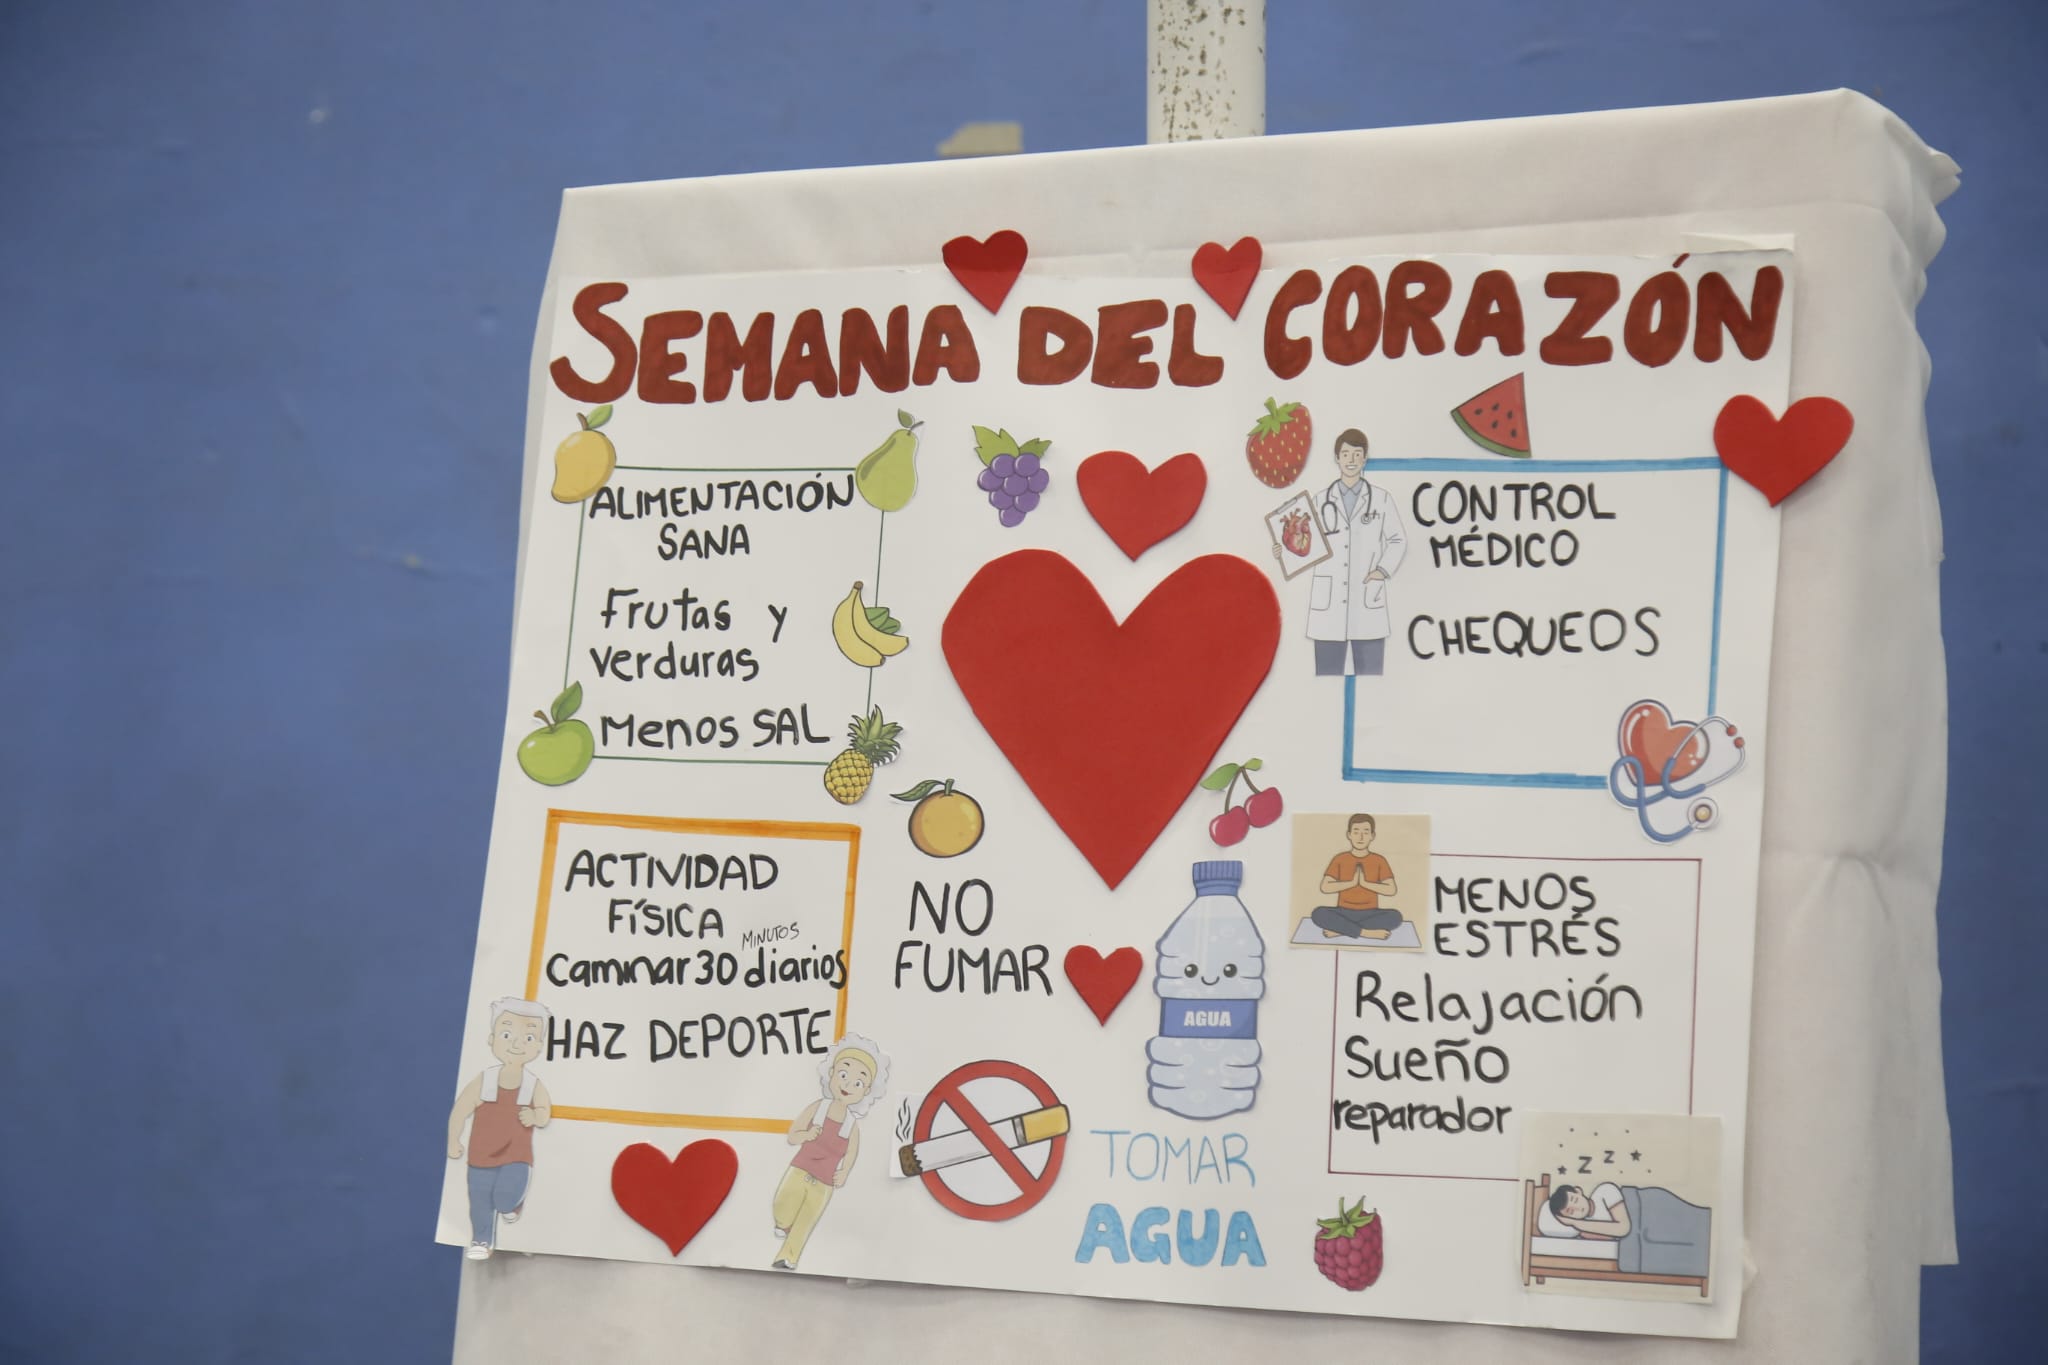 SEMANA DEL CORAZÓN
ALIMENTACIÓN
SANA
Frutas y
verduras
Menos SAL
CONTROL
MÉDICO
CHEQUEOS
ACTIVIDAD
FÍSICA
MINUTOS
Caminar 30 diarios
HAZ DEPORTE
NO
FUMAR
AGUA
TOMAR
AGUA
MENOS
ESTRÉS
Relajación
Sueño
reparador
Z Z